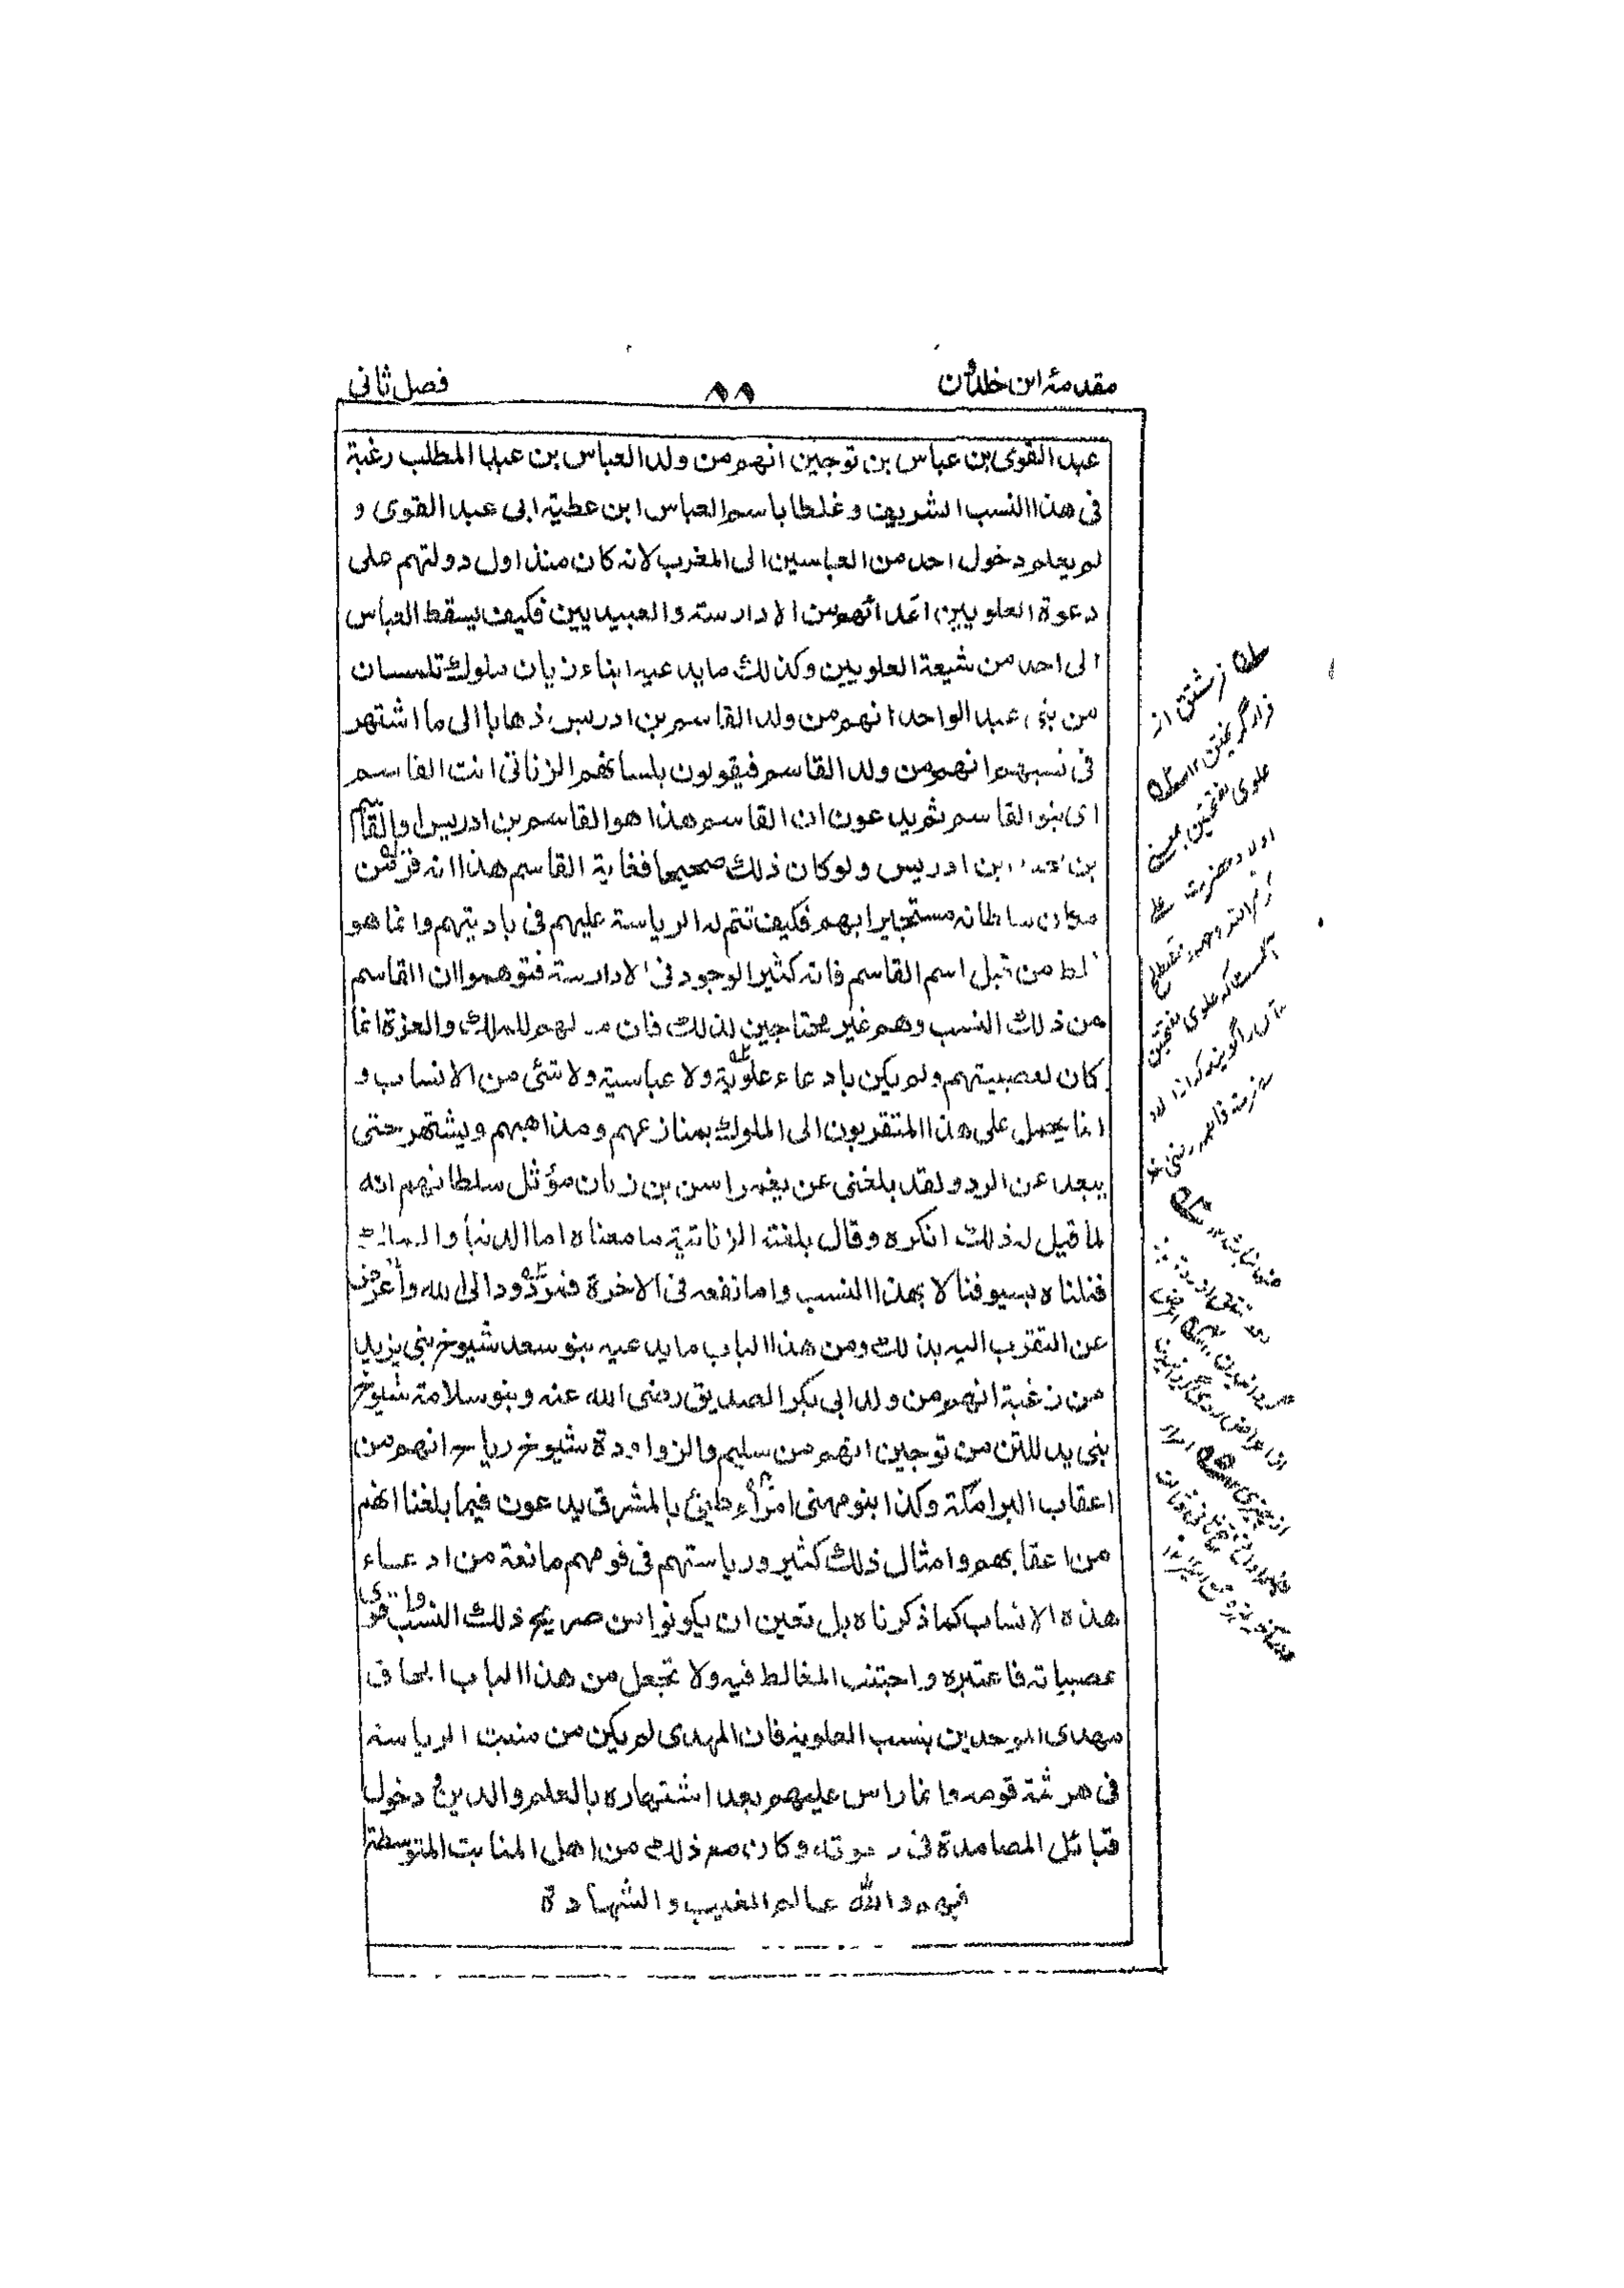 مقدمۂ ابن خلدون
۸۸
فصل ثانی
عبد القوی بن عباس بن توجین انهم من ولد العباس بن عبد المطلب رغبة
فی هذا النسب الشریف و غلطا باسم العباس ابن عطیة ابی عبد القوی و
لم یعلم دخول احد من العباسین الی المغرب لانه کان منذ اول دولتهم علی
دعوة العلویین اعدائهم من الادارسة والعبیدیین فکیف یسقط العباس
الی احد من شیعة العلویین وکذلک ما یدعیه ابناء زیان ملوک تلمسان
من بنی عبد الواحد انهم من ولد القاسم بن ادریس ذهابا الی ما اشتهر
فی نسبهم انهم من ولد القاسم فیقولون بلسانهم الزناتی انت القاسم
ای بنو القاسم ثم یدعون ان القاسم هذا هو القاسم بن ادریس او القاسم
بن محمد ابن ادریس ولو کان ذلک صحیحا فغایة القاسم هذا انه فر من
مکان سلطانه مستجیرا بهم فکیف تتم له الریاسة علیهم فی بادیتهم وانما هو
غلط من قبل اسم القاسم فانه کثیر الوجود فی الادارسة فتوهموا ان القاسم
من ذلک النسب وهم غیر محتاجین لذلک فان لهم للملک والعزة انما
کان لعصبیتهم ولم یکن بادعاء علویة ولا عباسیة ولا شئی من الانساب و
انما یحمل علی هذا المتقربون الی الملوک بمنازعهم ومذاهبهم ویشتهر حتی
یبعد عن الرد ولقد بلغنی عن یغمراسن بن زیان مؤثل سلطانهم انه
لما قیل له ذلک انکره وقال بلغته الزناتیة ما معناه اما الدنیا والملک
فنلناه بسیوفنا لا بهذا النسب واما نفعه فی الاخرة فمردود الی الله واعرض
عن التقرب الیه بذلک ومن هذا الباب ما یدعیه بنو سعد شیوخ بنی یزید
من زغبة انهم من ولد ابی بکر الصدیق رضی الله عنه وبنو سلامة شیوخ
بنی یدللتن من توجین انهم من سلیم والزواودة شیوخ ریاح انهم من
اعقاب البرامکة وکذا بنو مهنی امراء طیئ بالمشرق یدعون فیما بلغنا انهم
من اعقابهم وامثال ذلک کثیر وریاستهم فی قومهم مانعة من ادعاء
هذه الانساب کما ذکرناه بل تعین ان یکونوا من صریح ذلک النسب واقوی
عصبیاته فاعتبره واجتنب المغالط فیه ولا تجعل من هذا الباب الحاق
مهدی الموحدین بنسب العلویة فان المهدی لم یکن من منبت الریاسة
فی هرثمة قومه وانما راس علیهم بعد اشتهاره بالعلم والدین و دخول
قبائل المصامدة فی دعوته وکان مع ذلک من اهل المنابت المتوسطة
فیهم والله عالم الغیب والشهادة
فر مشتق از
علوی بفتحتین بمعنی
اولاد حضرت علی